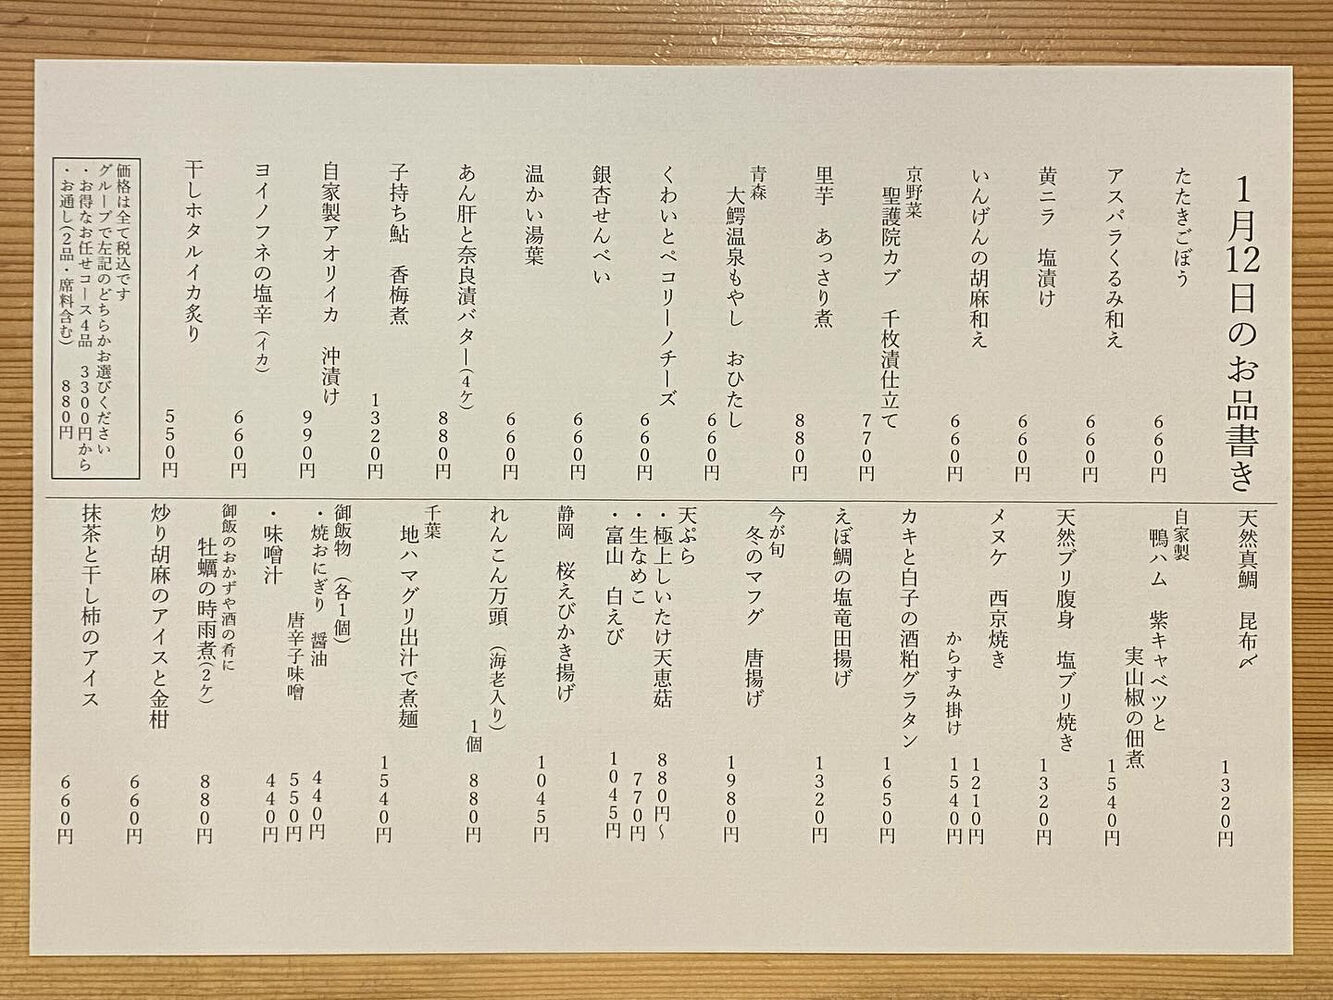 1月12日のお品書き
たたきごぼう
660円
アスパラくるみ和え
660円
黄ニラ 塩漬け
660円
いんげんの胡麻和え
660円
京野菜
聖護院カブ 千枚漬仕立て
770円
里芋 あっさり煮
880円
青森
大鰐温泉もやし おひたし
660円
くわいとペコリーノチーズ
660円
銀杏せんべい
660円
温かい湯葉
660円
あん肝と奈良漬バター(4ケ)
880円
子持ち鮎 香梅煮
1320円
自家製アオリイカ 沖漬け
990円
ヨイノフネの塩辛(イカ)
660円
干しホタルイカ炙り
550円
価格は全て税込です
グループで左記のどちらかお選びください
・お得なお任せコース4品 3300円から
・お通し(2品・席料含む) 880円
天然真鯛 昆布〆
1320円
自家製
鴨ハム 紫キャベツと
実山椒の佃煮
1540円
天然ブリ腹身 塩ブリ焼き
1320円
メヌケ 西京焼き
1210円
からすみ掛け
1540円
カキと白子の酒粕グラタン
1650円
えぼ鯛の塩竜田揚げ
1320円
今が旬
冬のマフグ 唐揚げ
1980円
天ぷら
・極上しいたけ天恵菇 880円～
・生なめこ 770円
・富山 白えび 1045円
静岡 桜えびかき揚げ
1045円
れんこん万頭 (海老入り)
1個 880円
千葉
地ハマグリ出汁で煮麺
1540円
御飯物 (各1個)
・焼おにぎり 醤油 440円
唐辛子味噌 550円
・味噌汁 440円
御飯のおかずや酒の肴に
牡蠣の時雨煮(2ケ)
880円
炒り胡麻のアイスと金柑
660円
抹茶と干し柿のアイス
660円